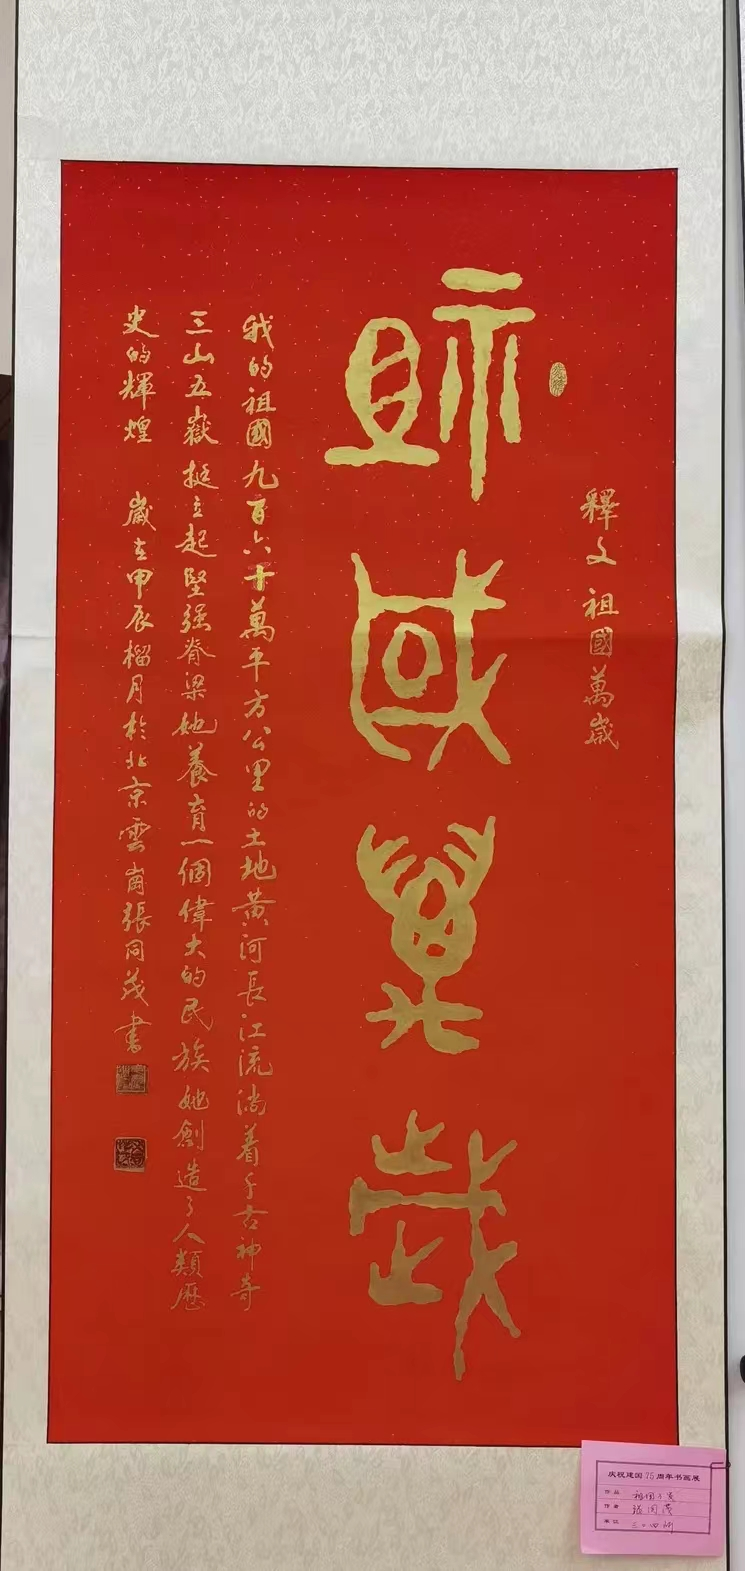 釋文 祖國萬歲
祖國萬歲
我的祖國九百六十萬平方公里的土地黄河長江流淌着千古神奇
三山五嶽挺立起堅强脊梁她養育一個偉大的民族她創造了人類歷
史的輝煌 歲在甲辰榴月於北京雲崗張同茂書
庆祝建国75周年书画展
作品 祖国万岁
作者 张同茂
单位